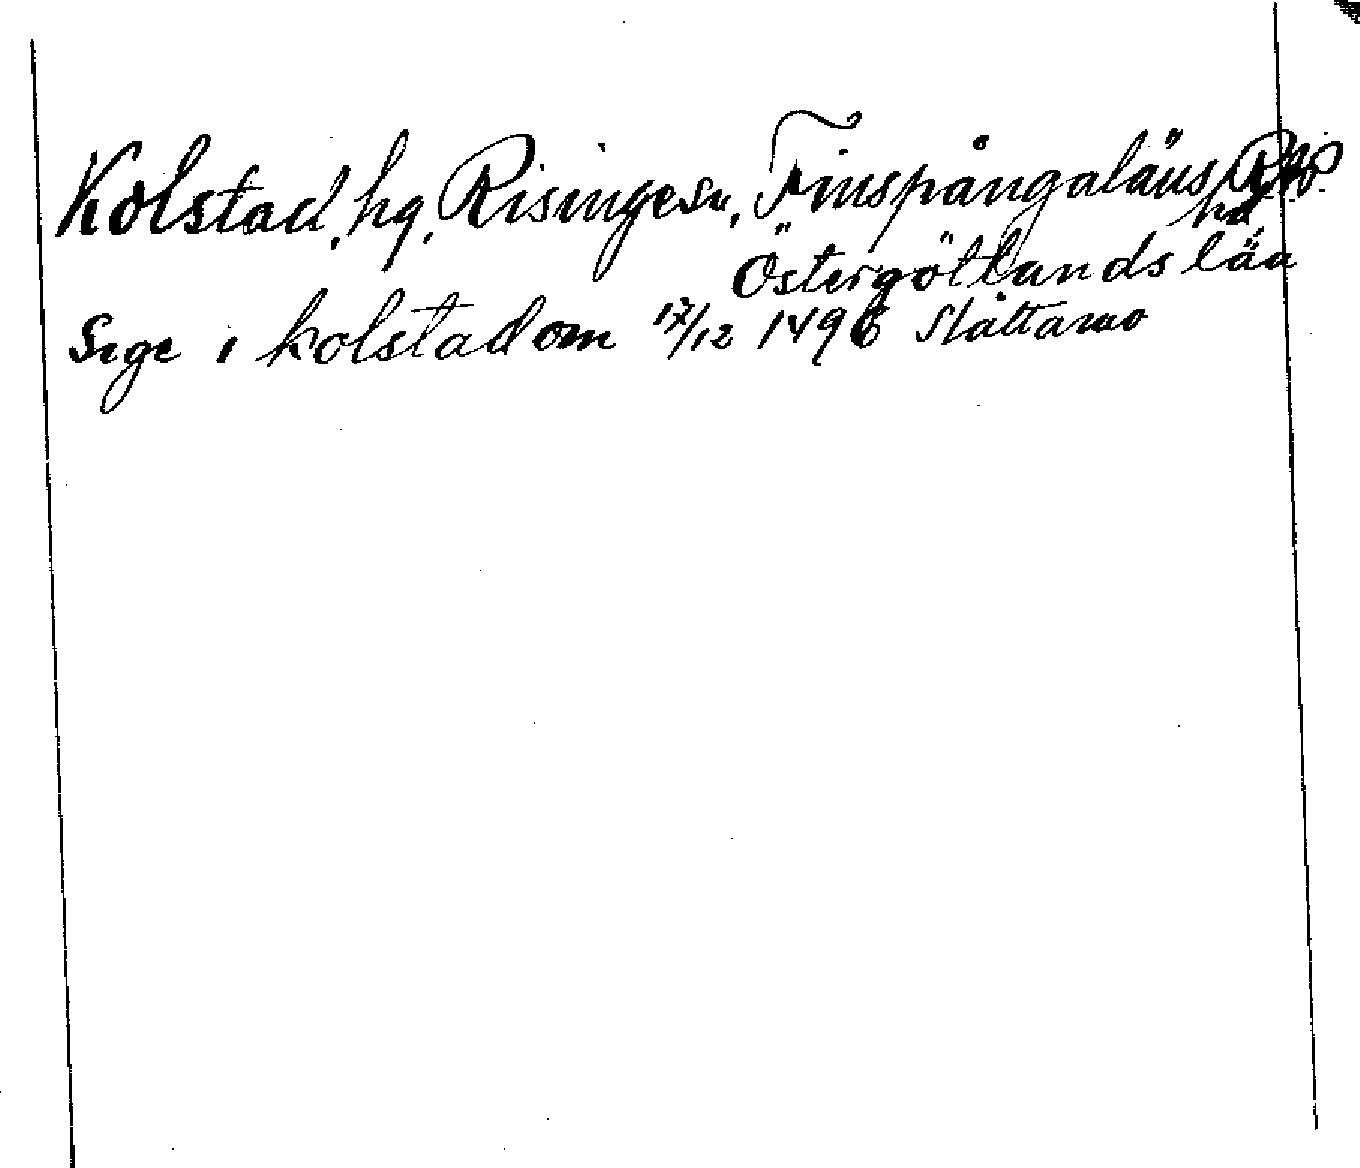 Kolstad, hg, Risinge sn, Finspångaläns
hd,
Östergötlands län
Sige i Kolstad om 17/12 1496 Slåttamo